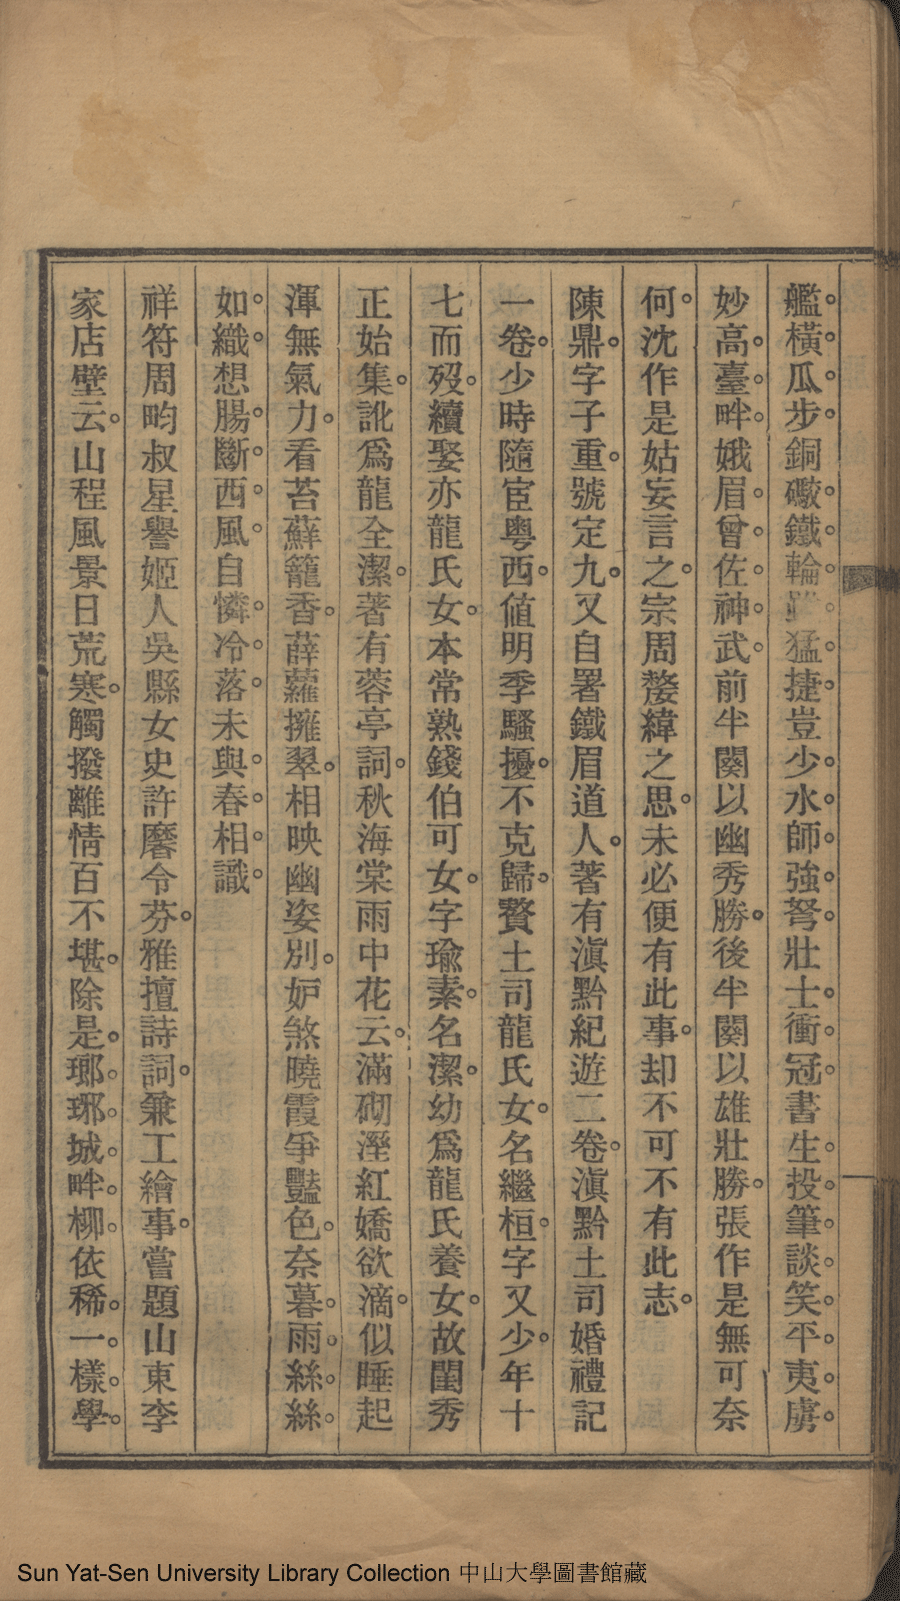 艦橫瓜步銅礮鐵輪雖猛捷豈少水師強弩壯士衝冠書生投筆談笑平夷虜
妙高臺畔娥眉曾佐神武前半闋以幽秀勝後半闋以雄壯勝張作是無可奈
何沈作是姑妄言之宗周嫠緯之思未必便有此事却不可不有此志
陳鼎字子重號定九又自署鐵眉道人著有滇黔紀遊二卷滇黔土司婚禮記
一卷少時隨宦粵西値明季騷擾不克歸贅土司龍氏女名繼桓字又少年十
七而歿續娶亦龍氏女本常熟錢伯可女字瑜素名潔幼爲龍氏養女故閨秀
正始集訛爲龍全潔著有蓉亭詞秋海棠雨中花云滿砌溼紅嬌欲滴似睡起
渾無氣力看苔蘚籠香薜蘿擁翠相映幽姿別妒煞曉霞爭豔色奈暮雨絲絲
如織想腸斷西風自憐冷落未與春相識
祥符周畇叔星譽姬人吳縣女史許磨令芬雅擅詩詞兼工繪事嘗題山東李
家店壁云山程風景日荒寒觸撥離情百不堪除是瑯琊城畔柳依稀一樣學
Sun Yat-Sen University Library Collection 中山大學圖書館藏